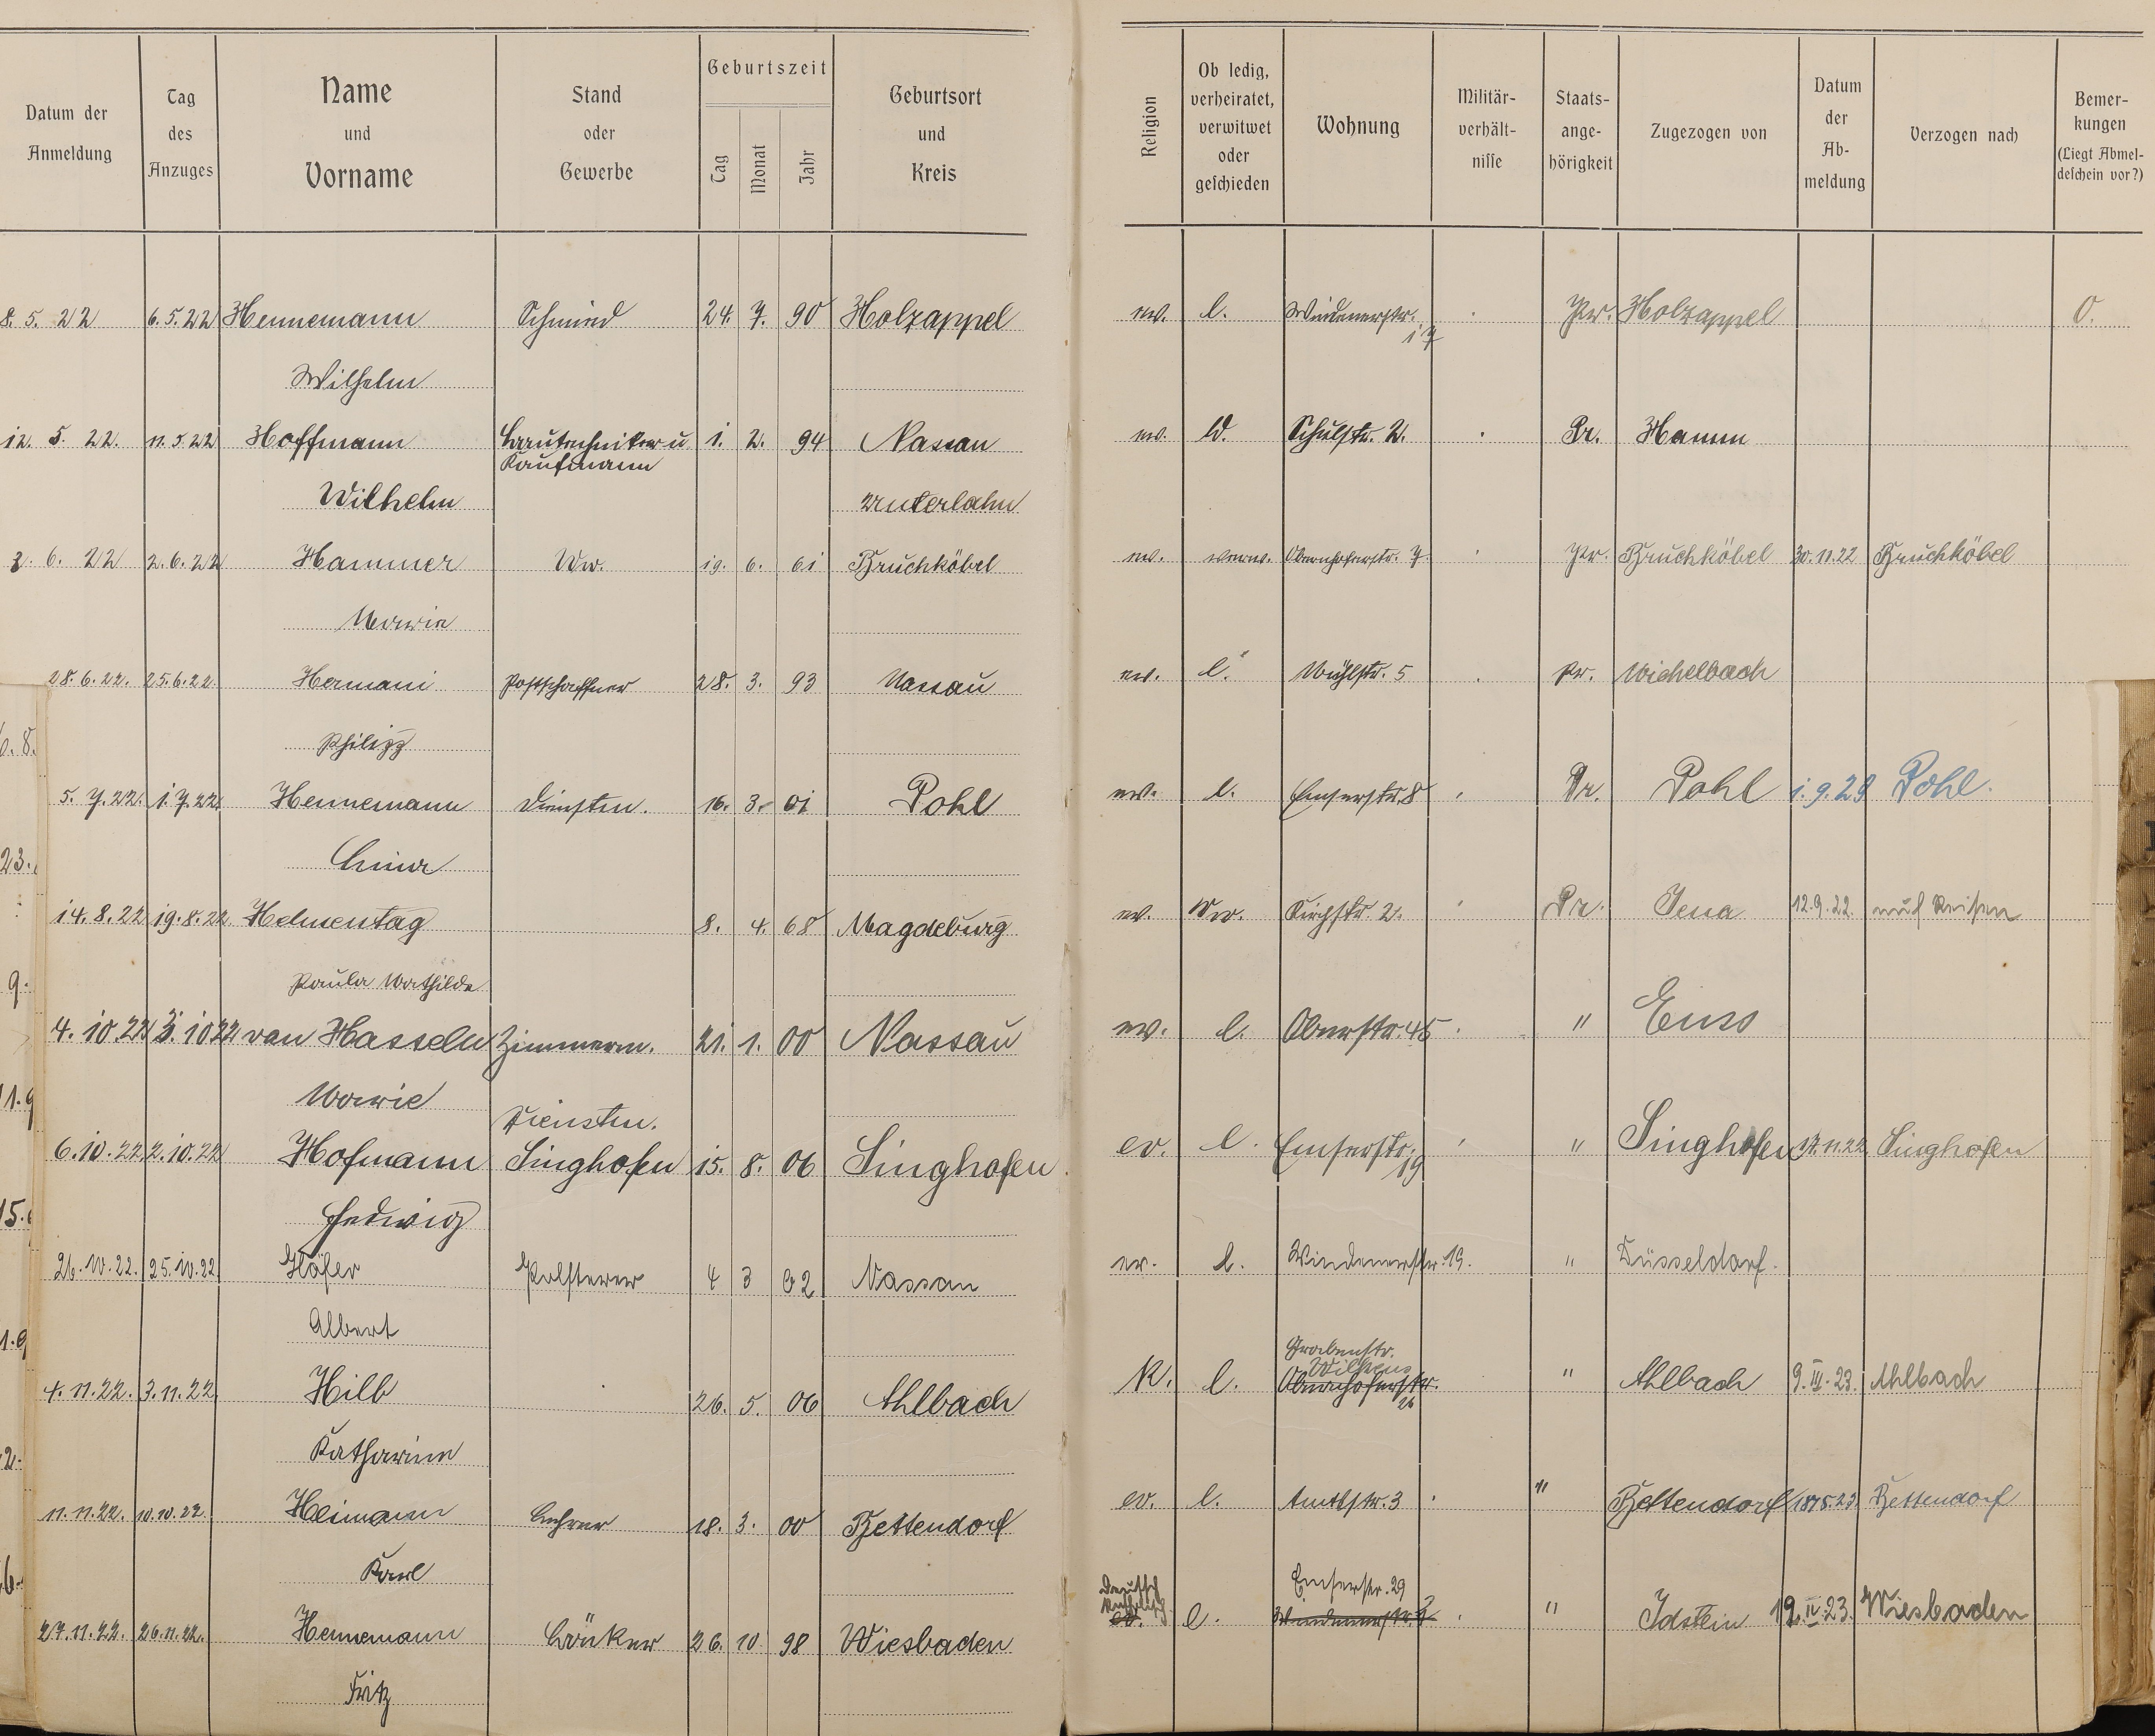 Datum der Anmeldung | Tag des Anzuges | Name und Vorname | Stand oder Gewerbe | Geburtszeit Tag Monat Jahr | Geburtsort und Kreis | Religion | Ob ledig, verheiratet, verwitwet oder geschieden | Wohnung | Militär-verhält-nisse | Staats-ange-hörigkeit | Zugezogen von | Datum der Ab-meldung | Verzogen nach | Bemer-kungen (Liegt Abmel-deschein vor?)
8. 5. 22 6.5.22 Hennemann Schmied 24. 7. 90 Holzappel ev. l. Windenerstr. 17 Pr. Holzappel 0.
Wilhelm
12. 5. 22. 11.5.22 Hoffmann Bautechniker u. 1. 2. 94 Nassau ev. Schulstr. 2. Pr. Hamm
Kaufmann
Wilhelm Unterlahn
3. 6. 22 2.6.22 Hammer Ww. 19. 6. 61 Bruchköbel ev. verw. Obernhoferstr. 7. Pr. Bruchköbel 30.11.22 Bruchköbel
Maria
28.6.22. 25.6.22. Hermani Postschaffner 28. 3. 93 Nassau ev. l. Mühlstr. 5 Pr. Michelbach
Philipp
5. 7. 22. 1.7.22. Hennemann Dienstm. 16. 3. 01 Pohl ev. l. Emserstr. 8 Pr. Pohl 1.9.23 Pohl.
14.8.22 19.8.22 Helmentag 8. 4. 68 Magdeburg ev. Ww. Kirchstr. 2. Pr. Jena 12.9.22. auf Reisen
Paula Mathilde
4. 10.22 3. 10 22 van Hasseln Zimmerm. 21. 1. 00 Nassau ev. l. Oberstr. 45 " Ems
Marie
Dienstm.
6.10.22. 2.10.22 Hofmann Singhofen 15. 8. 06 Singhofen ev. l. Emserstr. 19 " Singhofen 17.11.22. Singhofen
Hedwig
26.10.22. 25.10.22. Höfer Polsterer 4 3 02 Nassau ev. l. Windenerstr. 19. " Düsseldorf.
Albert
Grabenstr.
4.11.22. 3.11.22 Hilb 26. 5. 06 Ahlbach K. l. Obernhoferstr. 26 " Ahlbach 9.III.23. Ahlbach
Katharina
11.11.22. 10.10.22 Heimann Lehrer 18. 3. 00 Bettendorf ev. l. Amtsstr. 3 " Bettendorf Bettendorf
Karl
Emserstr. 29
27.11.22. 26.11.22. Hennemann Bänker 26. 10 98 Wiesbaden ev. l. Windenerstr. " Idstein 12.IV.23. Wiesbaden
Fritz